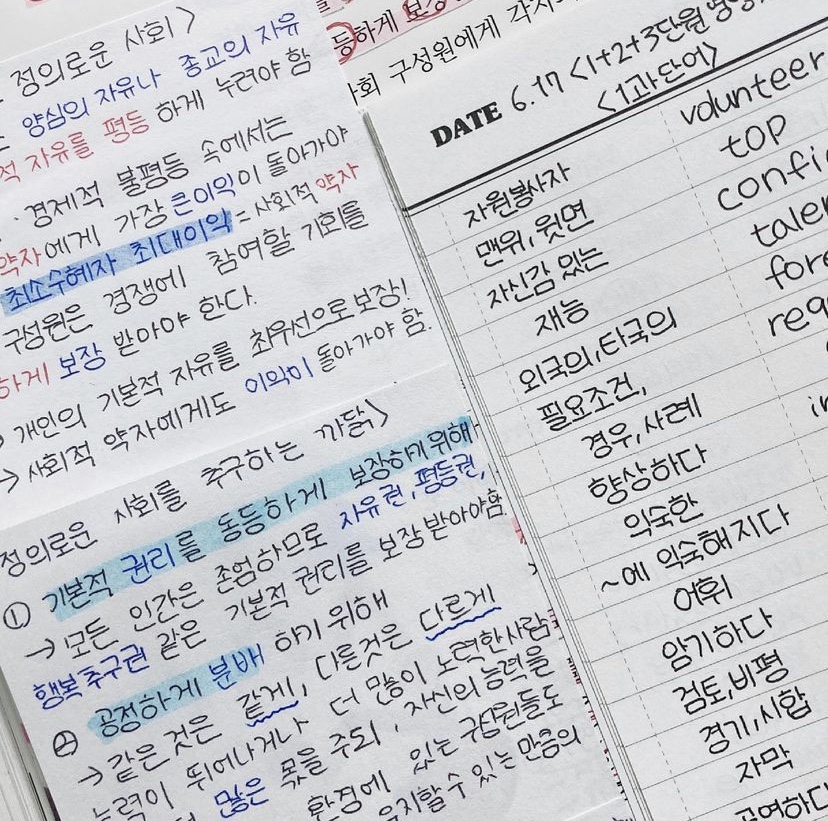 정의로운 사회>
양심의 자유나 종교의 자유
적 자유를 평등 하게 누려야 함
· 경제적 불평등 속에서는
약자에게 가장 큰이익이 돌아가야
최소수혜자 최대이익 = 사회적 약자
구성원은 경쟁에 참여할 기회를
하게 보장 받아야 한다.
개인의 기본적 자유를 최우선으로보장!
→ 사회적 약자에게도 이익이 돌아가야 함.
정의로운 사회를 추구하는 까닭>
① 기본적 권리를 동등하게 보장하기위해
→ 모든 인간은 존엄하므로 자유권, 평등권,
행복추구권 같은 기본적 권리를 보장받아야함
② 공정하게 분배 하기 위해
→ 같은 것은 같게, 다를것은 다르게
능력이 뛰어나거나 더 많이 노력한사람
많은 몫을 주되, 자신의 능력을
환경에 있는 구성원들도
유지할수 있는 만큼의
등하게 보장
사회 구성원에게
DATE 6.17 <1+2+3단원
<1과단어>
자원봉사자 volunteer
맨위, 윗면 top
자신감 있는 confi
재능 talen
외국의, 타국의 fore
필요조건, req
경우, 사례
향상하다 in
익숙한
~에 익숙해지다
어휘
암기하다
검토, 비평
경기, 시합
자막
공연하다